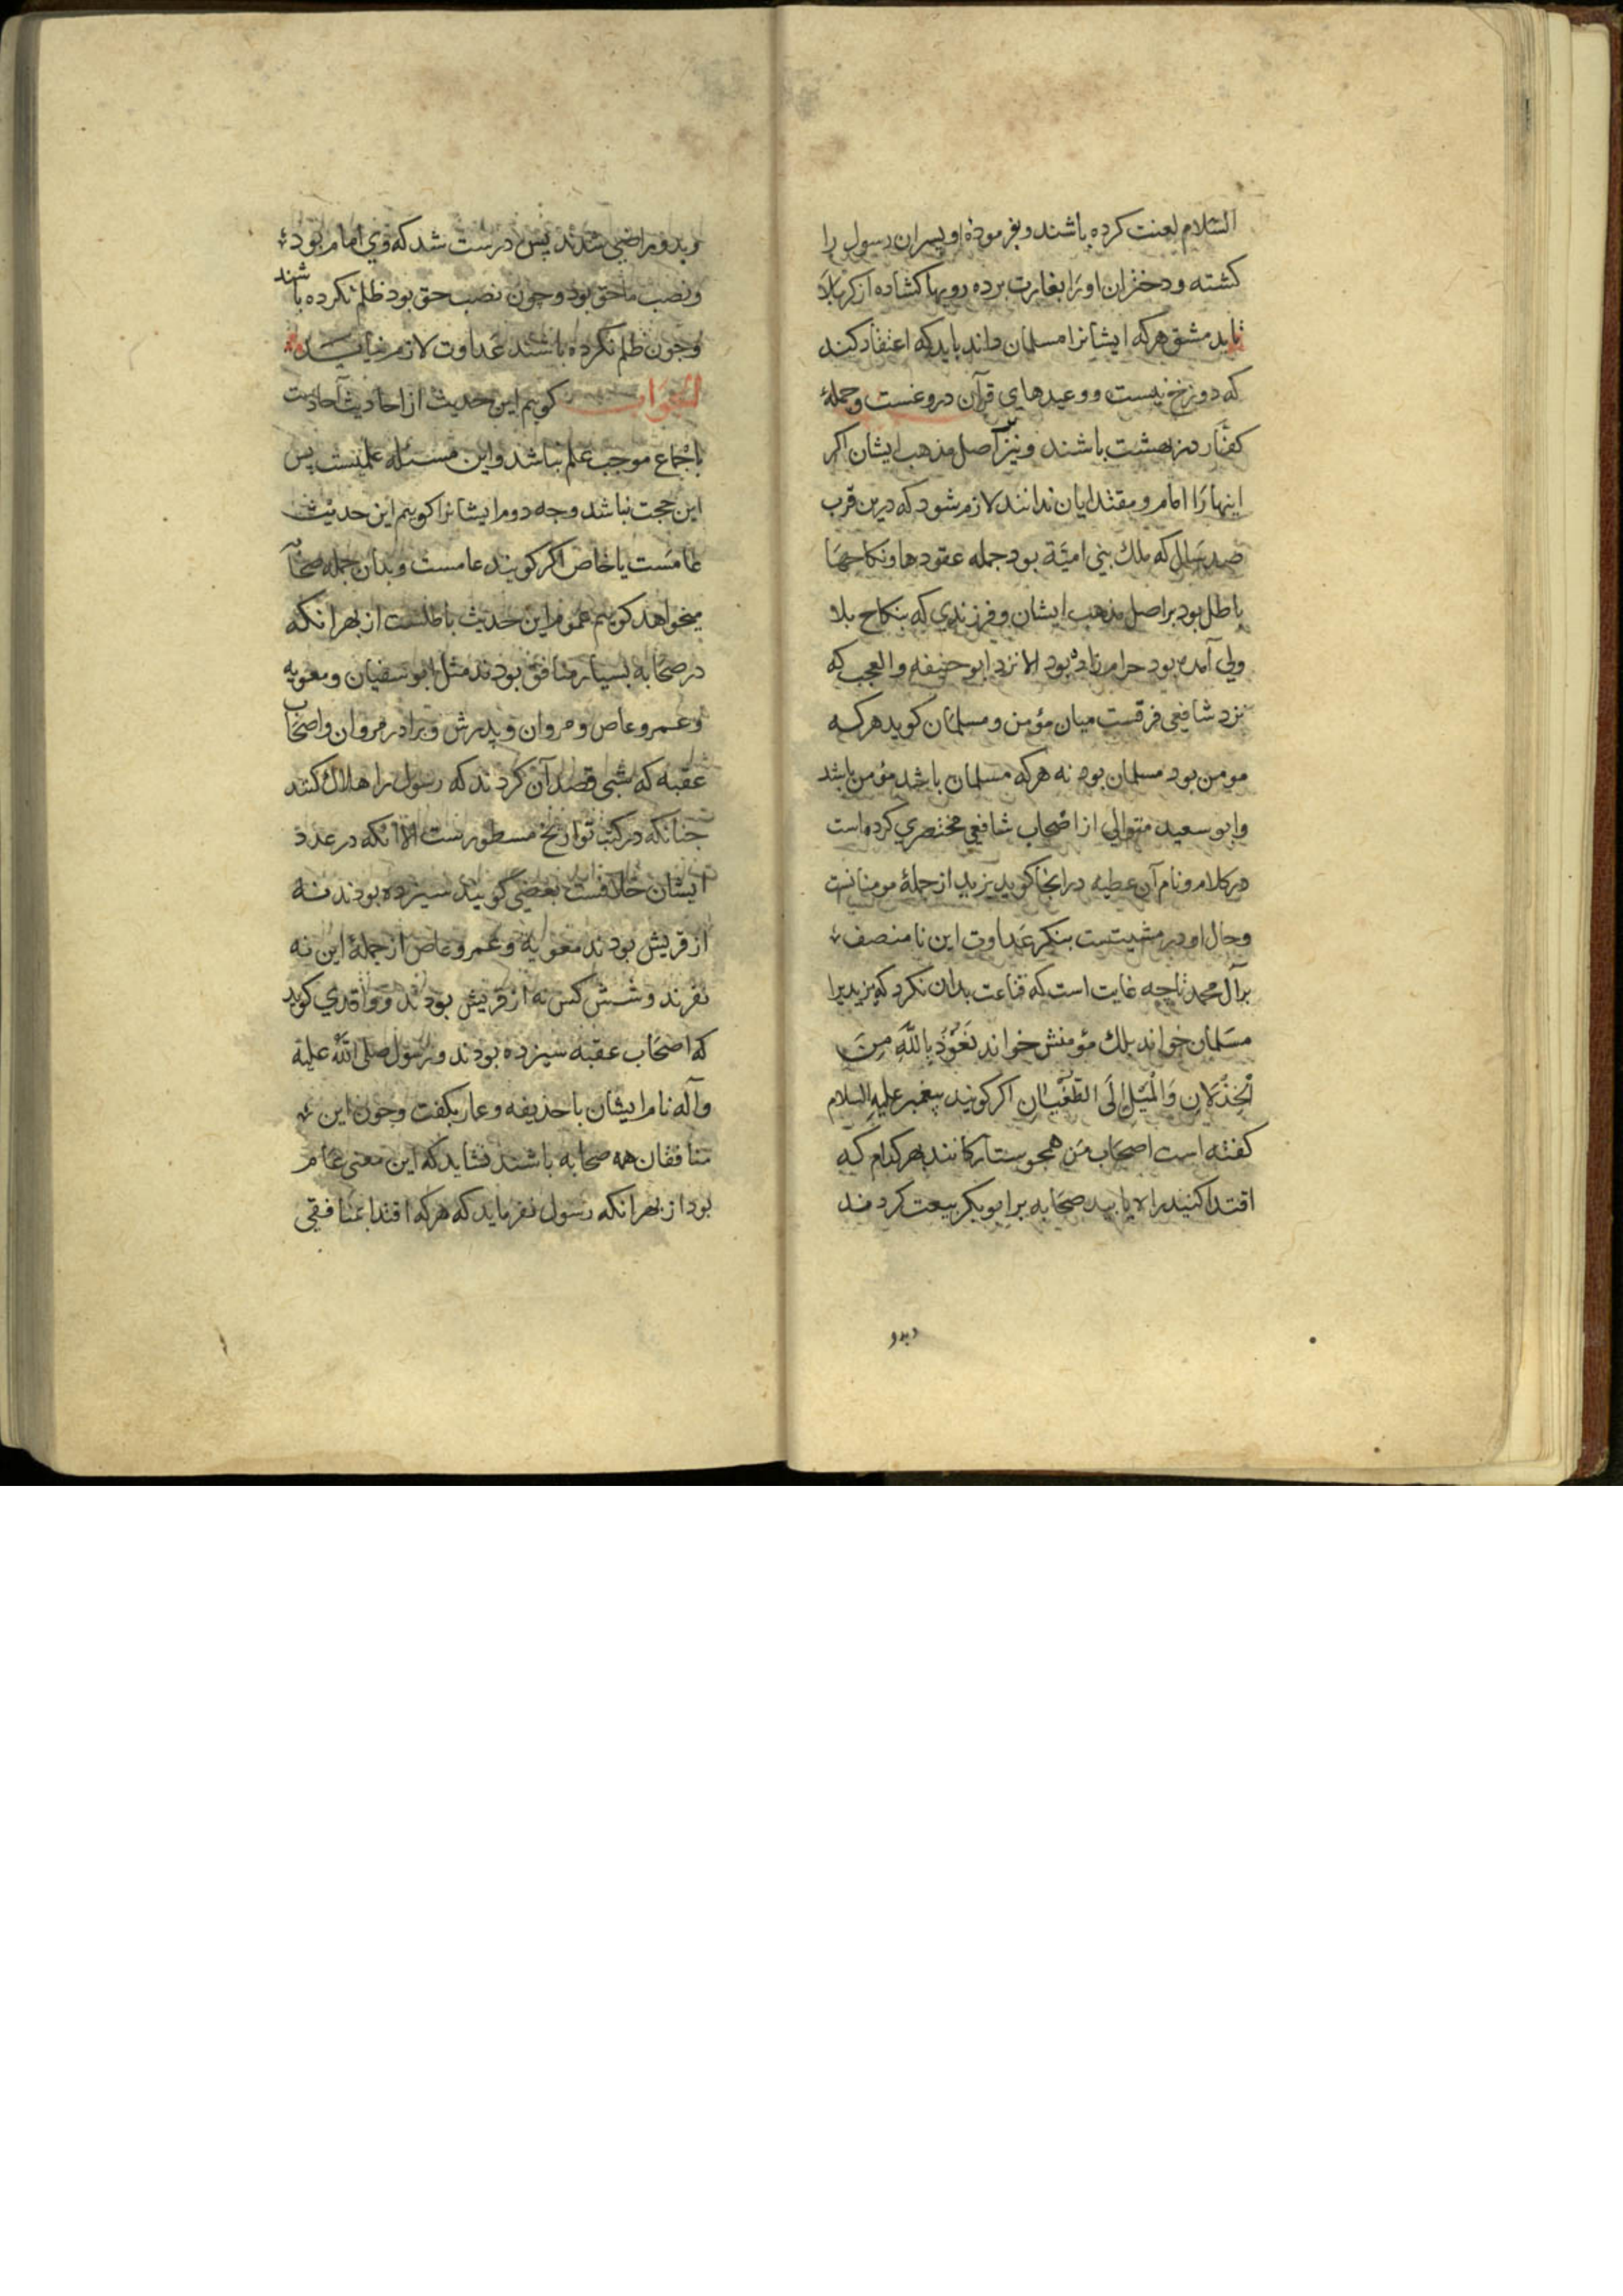 السّلام لعنت کرده باشند و بفرموده او پسران رسول را
کشته و دختران او را بغارت برده رویها کشاده از کربلا
تا بدمشق هرکه ایشانرا مسلمان داند باید که اعتقاد کند
که دوزخ نیست و وعیدهای قرآن دروغست و جملهٔ
کفّار در بهشت باشند و نیز اصل مذهب ایشان اکر
اینها را امام و مقتدایان ندانند لازم شود که درین قرب
صد سال که ملك بنی امیّة بود جمله عقودها و نکاحها
باطل بود بر اصل مذهب ایشان و فرزندی که بنکاح بلا
ولی آمده بود حرام زاده بود الا نزد ابو حنیفه و العجب که
نزد شافعی فرقست میان مؤمن و مسلمان کوید هرکه
مومن بود مسلمان بود نه هرکه مسلمان باشد مؤمن باشد
و ابو سعید متوالی از اصحاب شافعی مختصری کرده است
در کلام و نام آن عطیه در انجا کوید یزید از جملهٔ مومنانست
و حال او در مشیتست بنکر عداوت این نا منصف
بر آل محمد تا چه غایت است که قناعت بدان نکرد که یزید را
مسلمان خواند بلك مؤمنش خواند نَعُوذُ بِاللّهِ مِنَ
الْخِذْلَانِ وَالْمَیْلِ اِلَی الطُّغْیٰانِ اکر کویند پیغمبر علیه السلام
کفته است اصحاب من همچو ستارکانند بهر کدام که
اقتدا کنید راه یابید صحابه بر ابو بکر بیعت کردند
و بدو
و بدو راضی شدند پس درست شد که وی امام بود
و نصب ما حق بود و چون نصب حق بود ظلم نکرده باشند
و چون ظلم نکرده باشند عداوت لازم نیاید
الجواب کویم این حدیث از احادیث آحادست
باجماع موجب علم نباشد و این مسئله علمیست پس
این حجت نباشد وجه دوم ایشانرا کویم این حدیث
عامست یا خاص اکر کویند عامست و بدان جمله صحابه
میخواهد کویم عموم این حدیث باطلست از بهر انکه
در صحابه بسیار منافق بودند مثل ابو سفیان و معویه
و عمرو عاص و مروان و پدرش و برادر مروان و اصحاب
عقبه که شبی قصد آن کردند که رسول را هلاك کنند
چنانکه در کتب تواریخ مسطورست الا آنکه در عدد
ایشان خلافست بعضی کویند سیزده بودند نه
از قریش بودند معویه و عمرو عاص از جملهٔ این نه
نفرند و شش کس نه از قریش بودند و واقدی کوید
که اصحاب عقبه سیزده بودند و رسول صلی اللّه علیه
و آله نام ایشان با حذیفه و عمار بکفت و چون این
منافقان همه صحابه باشند نشاید که این معنی عام
بود از بهر انکه رسول نفرماید که هرکه اقتدا بمنافقی